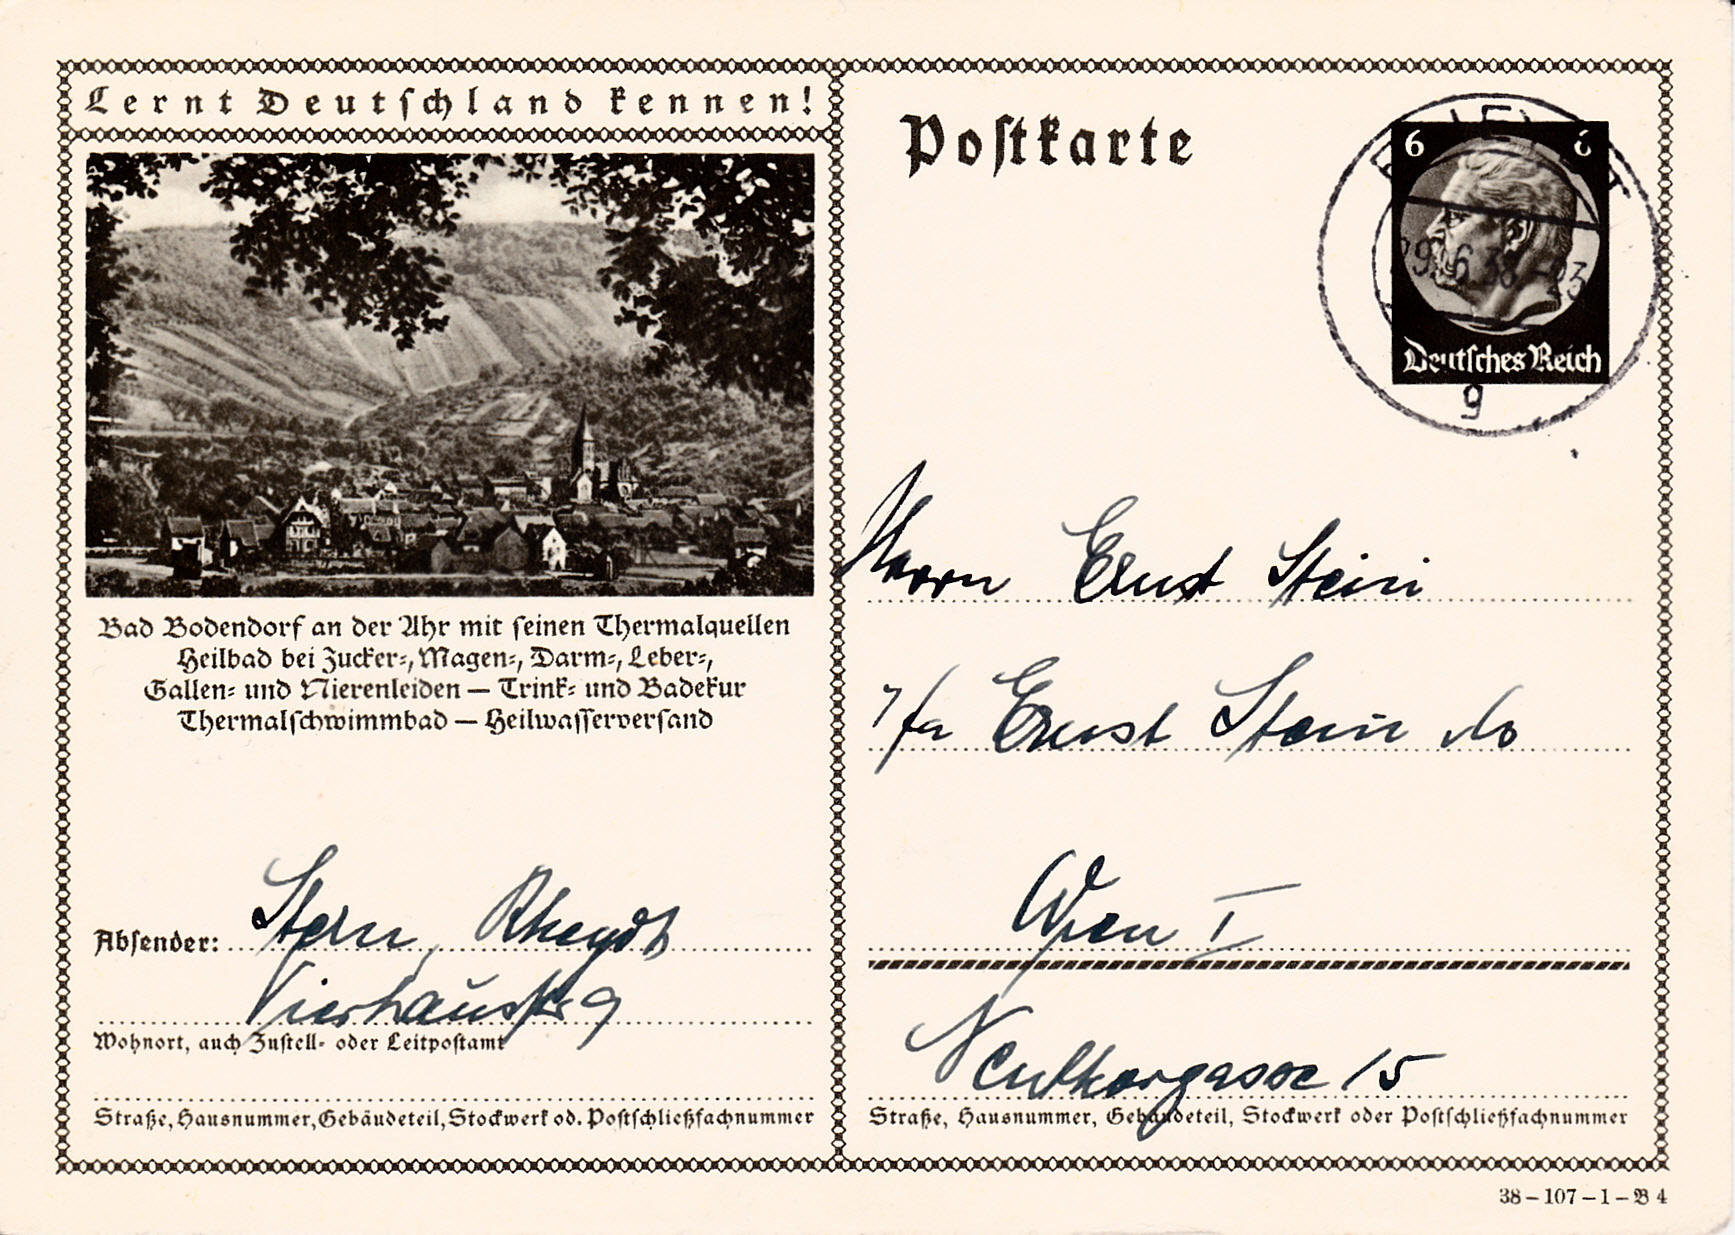 Lernt Deutschland kennen!
Bad Bodendorf an der Ahr mit seinen Thermalquellen
Heilbad bei Zucker-, Magen-, Darm-, Leber-,
Gallen- und Nierenleiden — Trink- und Badekur
Thermalschwimmbad — Heilwasserversand
Absender: Stern, Rheydt
Vierhausstr 9
Wohnort, auch Zustell- oder Leitpostamt
Straße, Hausnummer, Gebäudeteil, Stockwerk od. Postschließfachnummer
Postkarte
6 6
29.6.38 -23
Deutsches Reich
g
Herrn Ernst Stein
Ernst Stein
Wien I
Neutorgasse 15
Straße, Hausnummer, Gebäudeteil, Stockwerk oder Postschließfachnummer
38 – 107 – 1 – B 4